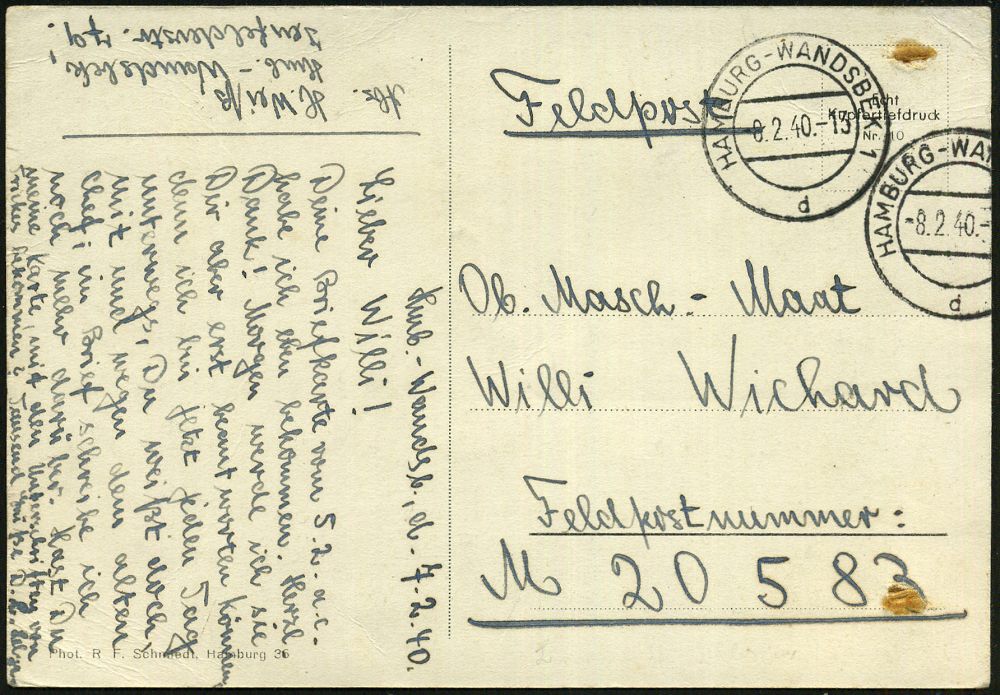 Abs.
H. Weiß
Hmb.-Wandsbek,
Jenfelderstr. 79.
Hmb.-Wandsb., d. 7.2.40.
Lieber Willi!
Deine Briefkarte vom 5.2. a.c.
habe ich eben bekommen. Herzl.
Dank! Morgen werde ich sie
Dir aber erst beantworten können,
denn ich bin jetzt jeden Tag
unterwegs, Du weißt doch,
mit und wegen dem alten
Chef; im Brief schreibe ich
noch mehr darüber. Hast Du
meine Karte, mit den Unterschriften von
bekommen? Tausend Grüße D.
Phot. R. F. Schmiedt, Hamburg 36
Feldpost
Echt
Kupfertiefdruck
Nr. 10
HAMBURG-WANDSBEK 1
8.2.40.-13
d
HAMBURG-WAN
-8.2.40.-
d
Ob. Masch.-Maat
Willi Wichard
Feldpostnummer:
M 20583